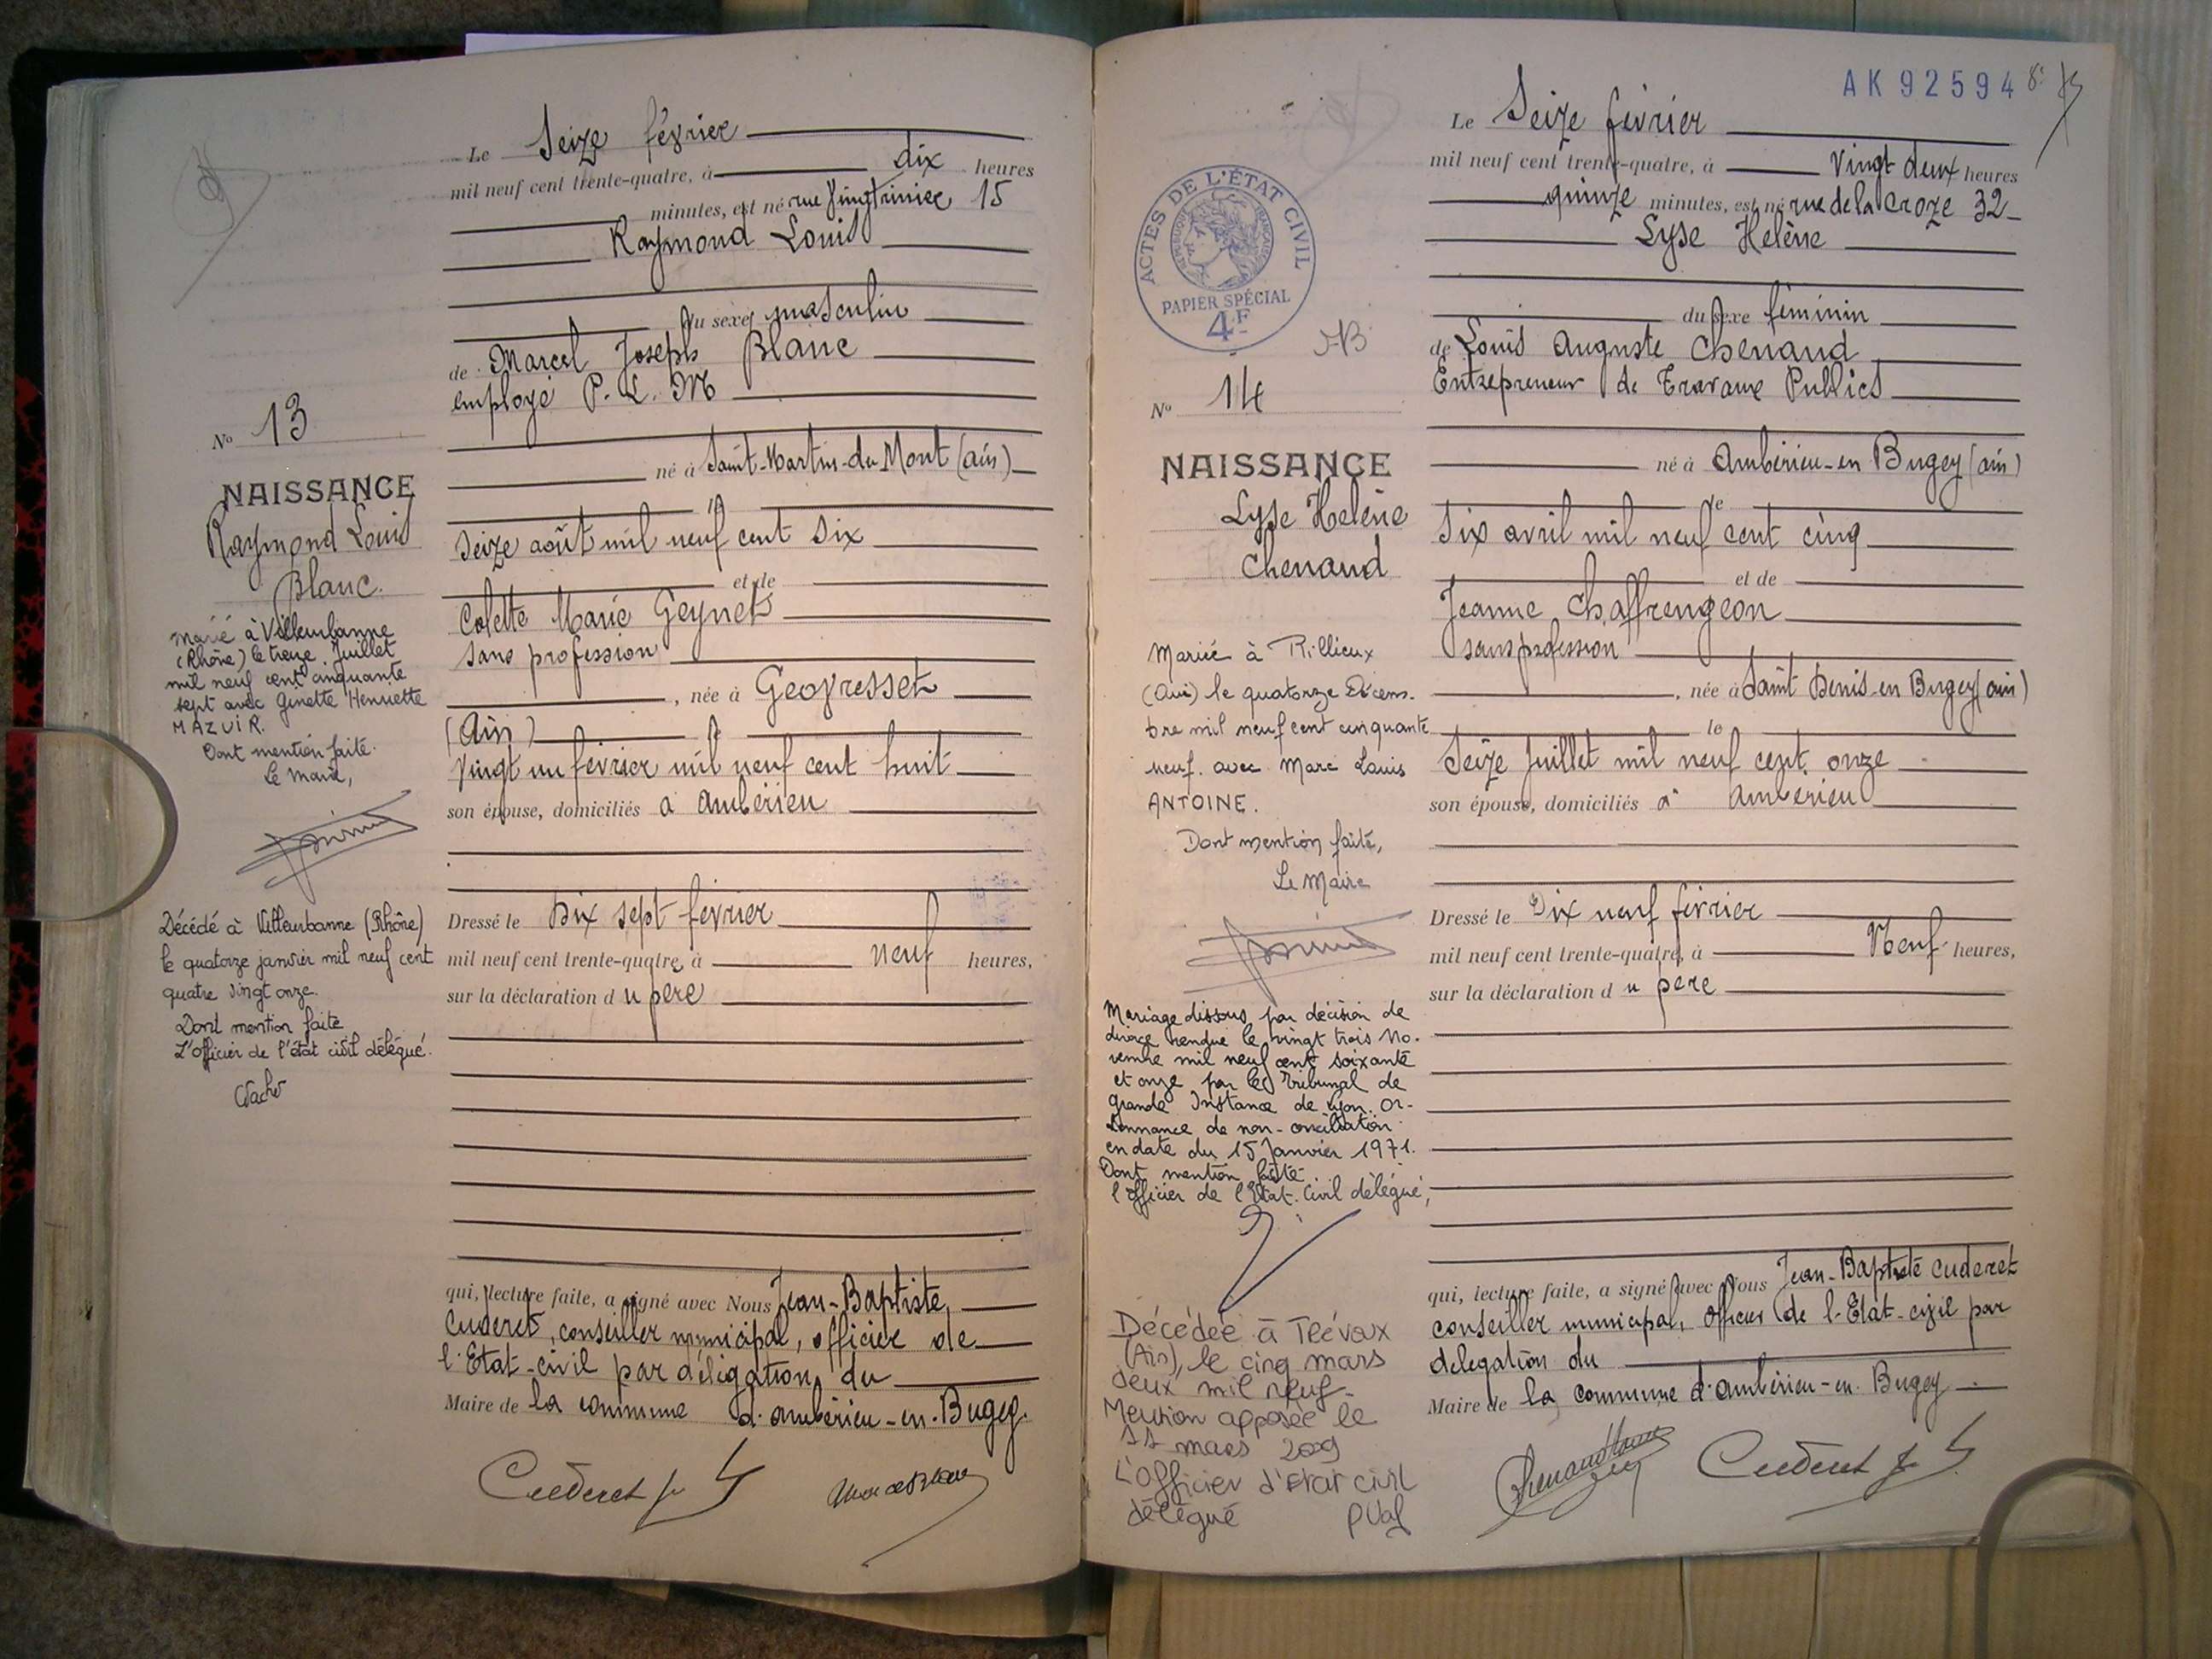 Le Seize février
mil neuf cent trente-quatre, à dix heures
minutes, est né rue Vingtrinier 15
Raymond Louis
du sexe masculin
de Marcel Joseph Blanc
employé P. L. M
né à Saint-Martin-du-Mont (ain)
le
seize août mil neuf cent six
et de
Colette Marie Geynet
sans profession
, née à Geovresset
(Ain) le
Vingt un février mil neuf cent huit
son épouse, domiciliés à ambérieu
Dressé le Dix sept février
mil neuf cent trente-quatre, à neuf heures,
sur la déclaration du père
qui, lecture faite, a signé avec Nous Jean-Baptiste
Cuderet, conseiller municipal, officier de
l'Etat-civil par délégation du
Maire de la commune d'ambérieu-en-Bugey.
Cuderet
No 13
NAISSANCE
Raymond Louis
Blanc.
marié à Villeurbanne
(Rhône) le treize Juillet
mil neuf cent cinquante
sept avec Ginette Henriette
MAZUIR.
Dont mention faite.
Le Maire,
Décédé à Villeurbanne (Rhône)
le quatorze janvier mil neuf cent
quatre vingt onze.
Dont mention faite
L'officier de l'état civil délégué.
AK 92594
Le Seize février
mil neuf cent trente-quatre, à Vingt deux heures
quinze minutes, est né rue de la Croze 32
Lyse Helène
du sexe féminin
de Louis Auguste Chenaud
Entrepreneur de Travaux Publics
né à Ambérieu-en Bugey (ain)
le
Six avril mil neuf cent cinq
et de
Jeanne Chaffrengeon
sans profession
, née à Saint Denis-en Bugey (ain)
le
Seize Juillet mil neuf cent onze
son épouse, domiciliés à ambérieu
Dressé le Dix neuf février
mil neuf cent trente-quatre, à Neuf heures,
sur la déclaration du père
qui, lecture faite, a signé avec Nous Jean-Baptiste Cuderet
conseiller municipal, officier de l-Etat-civil par
delegation du
Maire de la commune d'ambérieu-en-Bugey
Cuderet
ACTES DE L'ÉTAT CIVIL
RÉPUBLIQUE FRANÇAISE
PAPIER SPÉCIAL
4F
No 14
NAISSANCE
Lyse Helène
Chenaud
Mariée à Rillieux
(Ain) le quatorze Décem-
bre mil neuf cent cinquante
neuf. avec Marc Louis
ANTOINE.
Dont mention faite,
Le Maire
Mariage dissous par décision de
divorce rendue le vingt trois No-
vembre mil neuf cent soixante
et onze par le Tribunal de
Grande Instance de Lyon. Or-
donnance de non-conciliation
en date du 15 Janvier 1971.
Dont mention faite
l'officier de l'Etat-Civil délégué,
Décédée à Trévoux
(Ain), le cinq mars
deux mil neuf-
Mention apposée le
11 mars 2009
L'Officier d'Etat civil
délégué